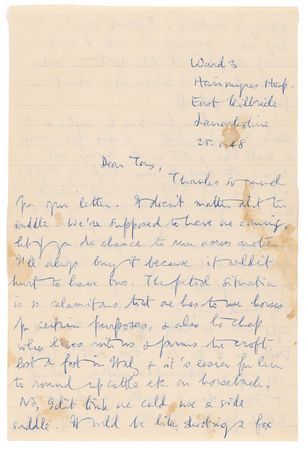 Ward 3
Hairmyres Hosp.
East Kilbride
Lanarkshire
25.1.48
Dear Tony,
Thanks so much
for your letter. It doesn't matter abt the
saddle. We're supposed to have one coming,
but if you do chance to run across another
I'd always buy it because it wouldn't
hurt to have two. The petrol situation
is so calamitous that one has to use horses
for certain purposes, & also the chap
who lives with us & farms the croft
lost a foot in the war & it's easier for him
to round up cattle etc. on horseback.
No, I don't think we could use a side
saddle. It would be like shooting a fox